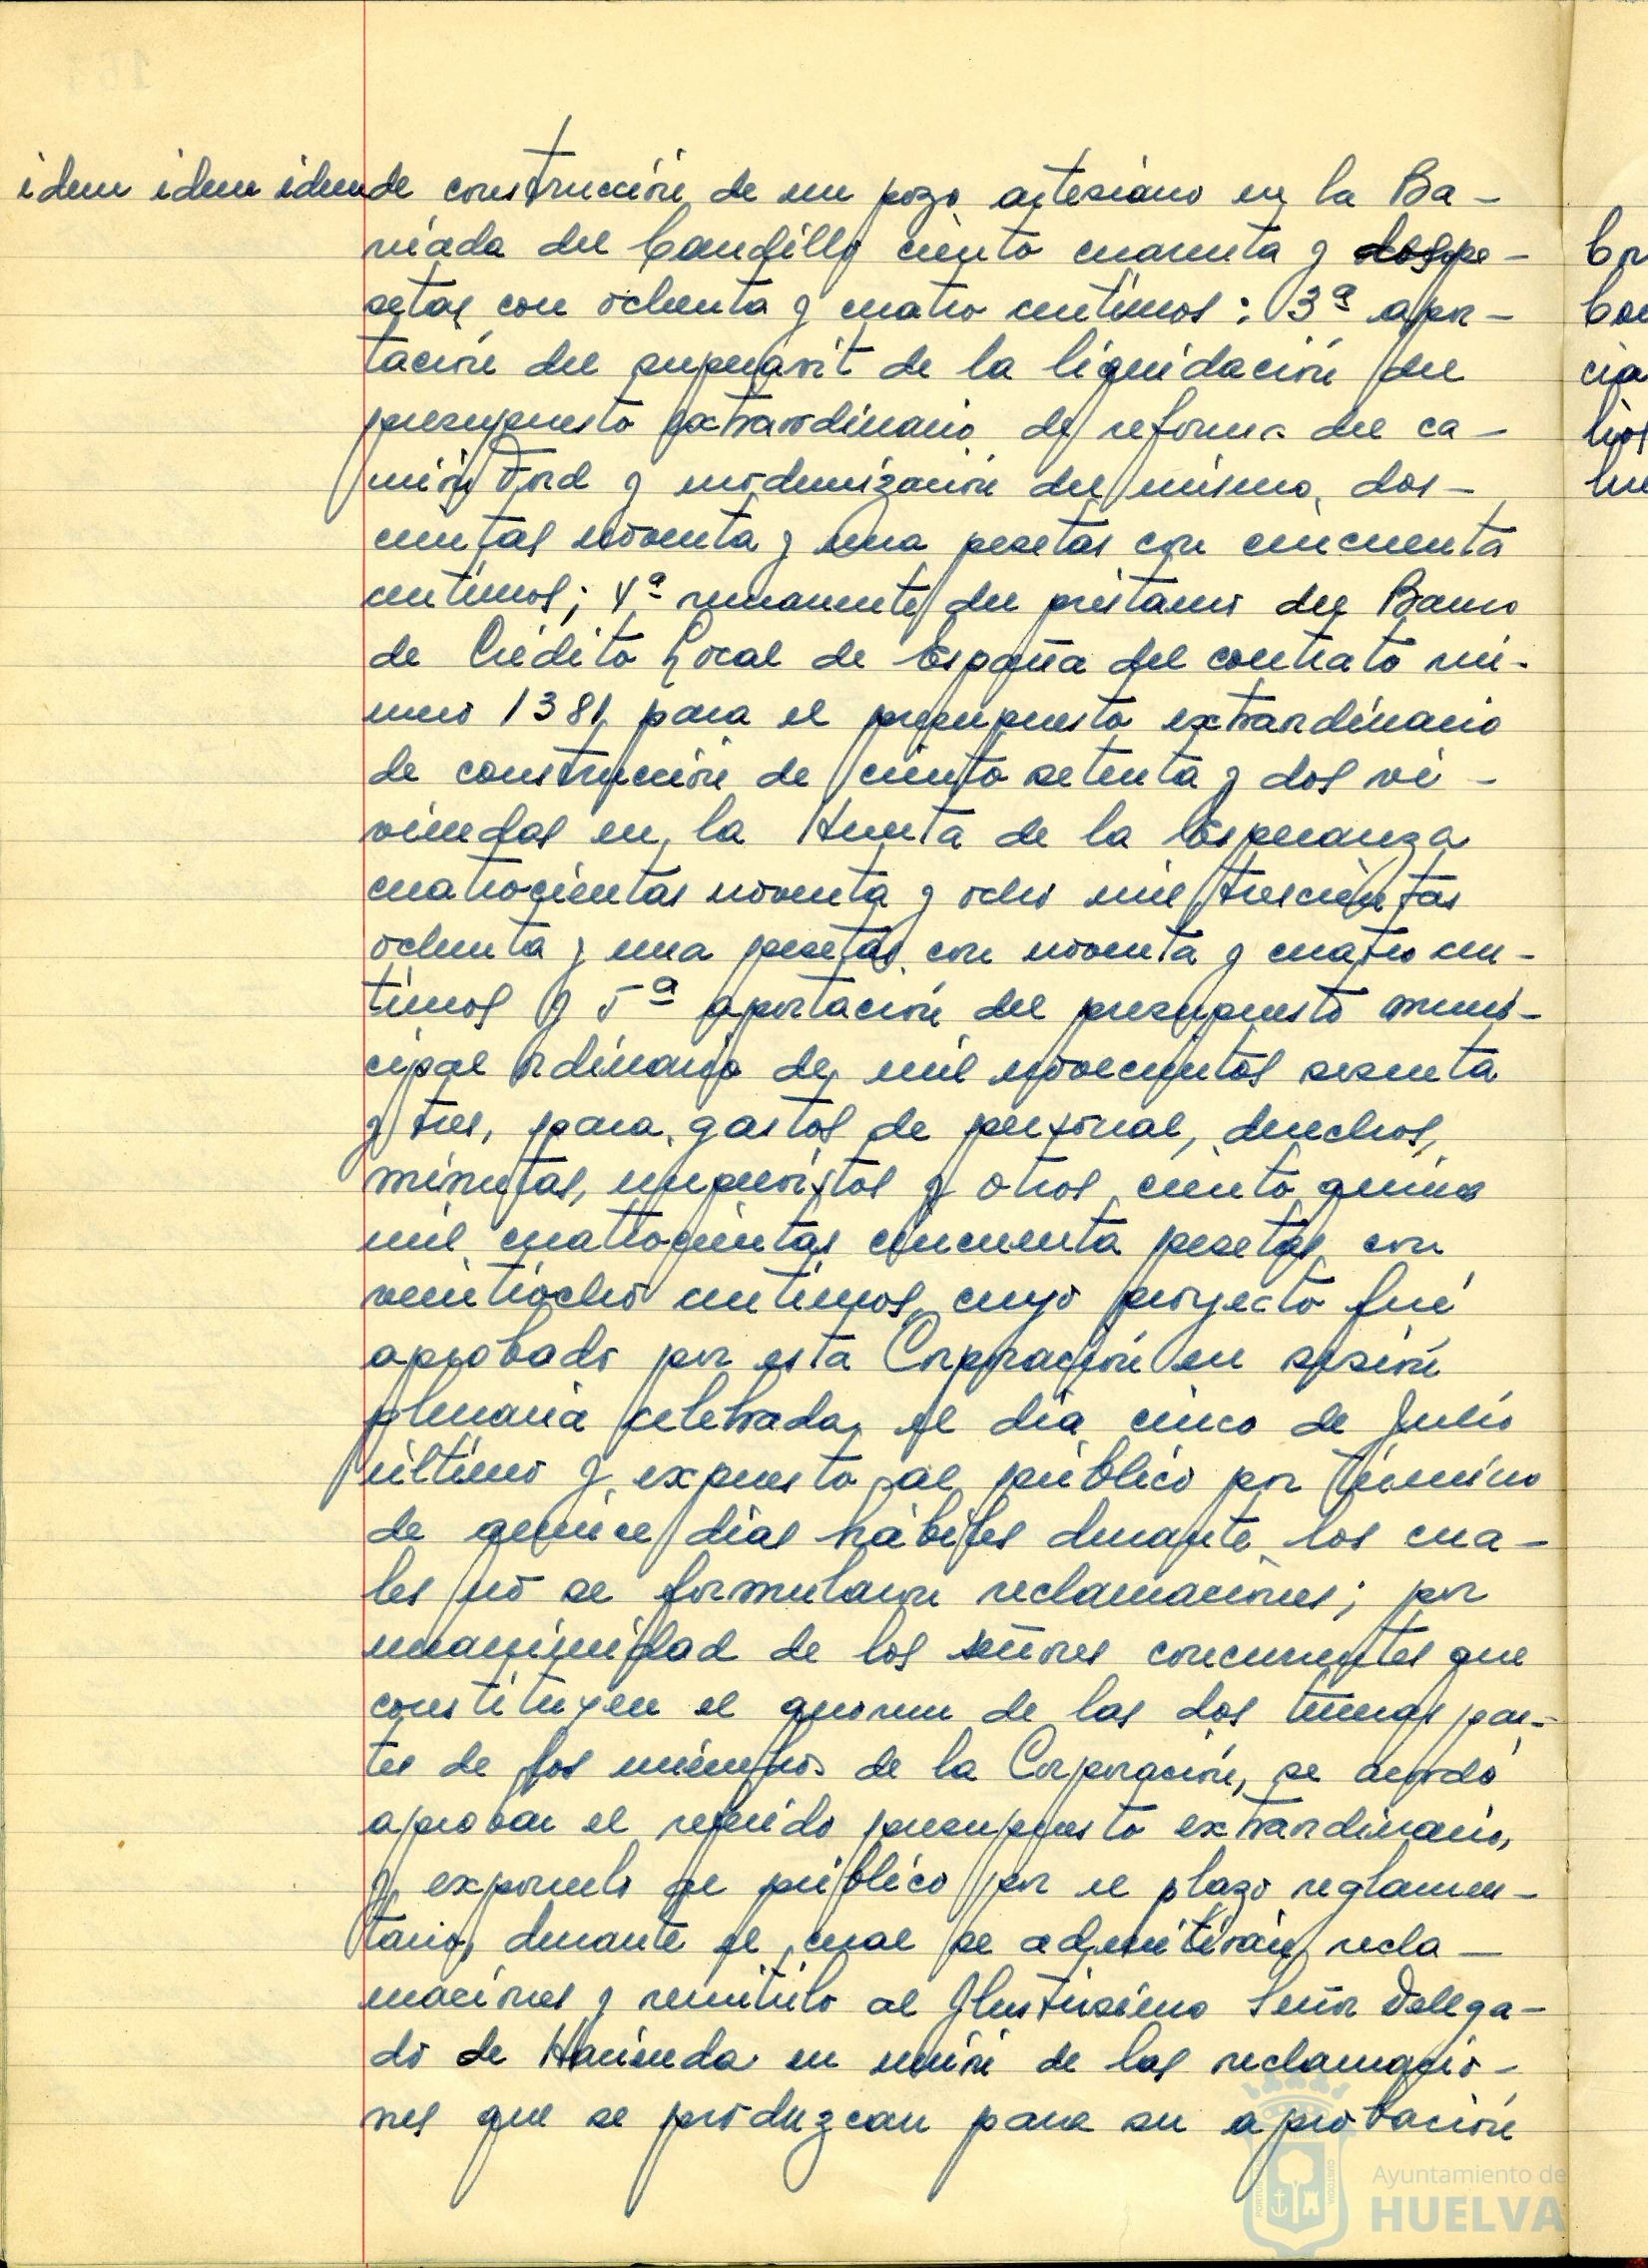 idem idem idem de construcción de un pozo artesiano en la Ba-
rriada del Caudillo ciento cuarenta y dos pe-
setas con ochenta y cuatro centimos: 3ª apor-
tación del superavit de la liquidación del
presupuesto extraordinario de reforma del ca-
mión Ford y modernización del mismo, dos-
cientas noventa y una pesetas con cincuenta
centimos; 4ª remanente del préstamo del Banco
de Crédito Local de España del contrato nú-
mero 1381 para el presupuesto extraordinario
de construcción de ciento setenta y dos vi-
viendas en la Huerta de la Esperanza
cuatrocientas noventa y ocho mil trescientas
ochenta y una pesetas con noventa y cuatro cen-
timos y 5ª aportación del presupuesto muni-
cipal ordinario de mil novecientos sesenta
y tres, para gastos de personal, derechos,
minutas, imprevistos y otros ciento quince
mil cuatrocientas cincuenta pesetas con
veintiocho centimos, cuyo proyecto fué
aprobado por esta Corporación en sesión
plenaria celebrada el dia cinco de Julio
último y expuesto al público por término
de quince dias hábiles durante los cua-
les nó se formularon reclamaciones; por
unanimidad de los señores concurrentes que
constituyen el quorum de las dos terceras par-
tes de los miembros de la Corporación, se acordó
aprobar el referido presupuesto extraordinario,
y exponerlo al público por el plazo reglamen-
tario, durante el cual se admitirán recla-
maciones y remitirlo al Ilustrisimo Señor Delega-
do de Hacienda en unión de las reclamacio-
nes que se produzcan para su aprobación
Ayuntamiento de
HUELVA